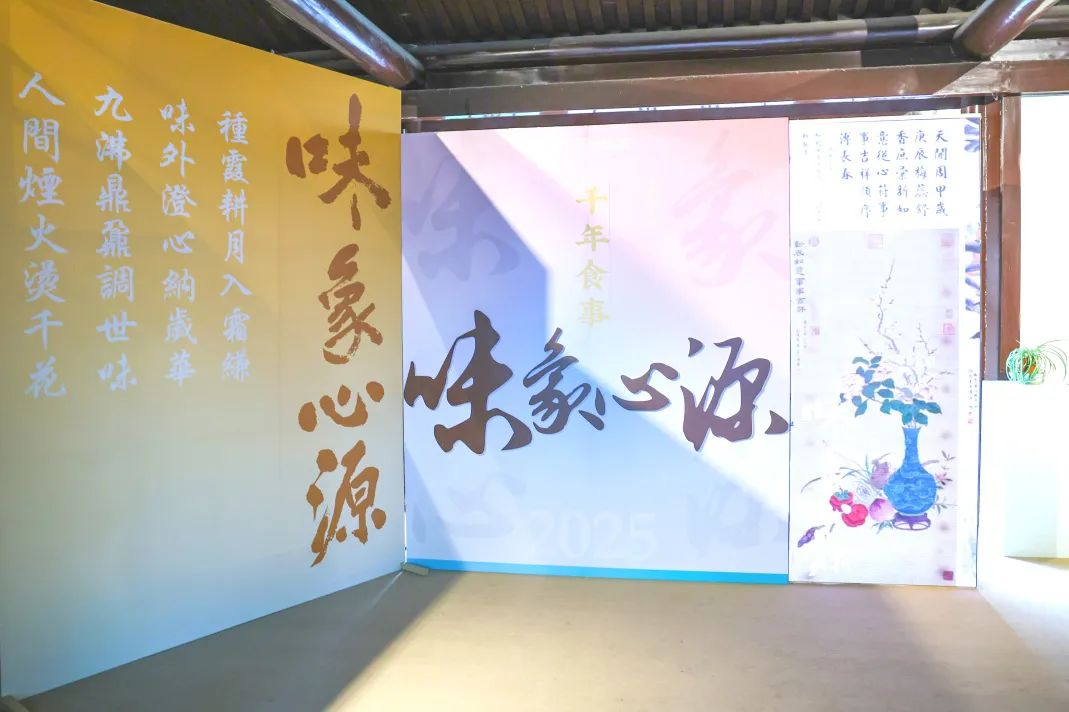 味象心源
種霞耕月入霜縑
味外澄心納歲華
九沸鼎鼐調世味
人間煙火燙千花
千年食事
味象心源
2025
天開周甲歲
庚辰梅蕊舒
香庶彙新如
意從心符事
事吉祥頌序
溥長春